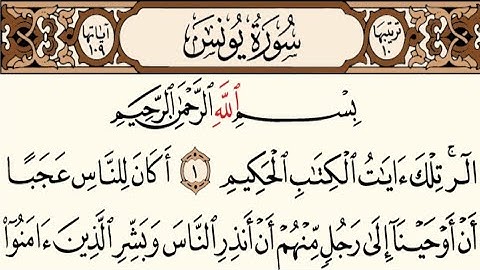 ترتيبها ١٠ سُورَةُ يُونُسَ آياتها ١٠٩
بِسْمِ ٱللَّهِ ٱلرَّحْمَٰنِ ٱلرَّحِيمِ
الٓرۚ تِلْكَ ءَايَٰتُ ٱلْكِتَٰبِ ٱلْحَكِيمِ ١ أَكَانَ لِلنَّاسِ عَجَبًا
أَنْ أَوْحَيْنَآ إِلَىٰ رَجُلٍ مِّنْهُمْ أَنْ أَنذِرِ ٱلنَّاسَ وَبَشِّرِ ٱلَّذِينَ ءَامَنُوٓا۟